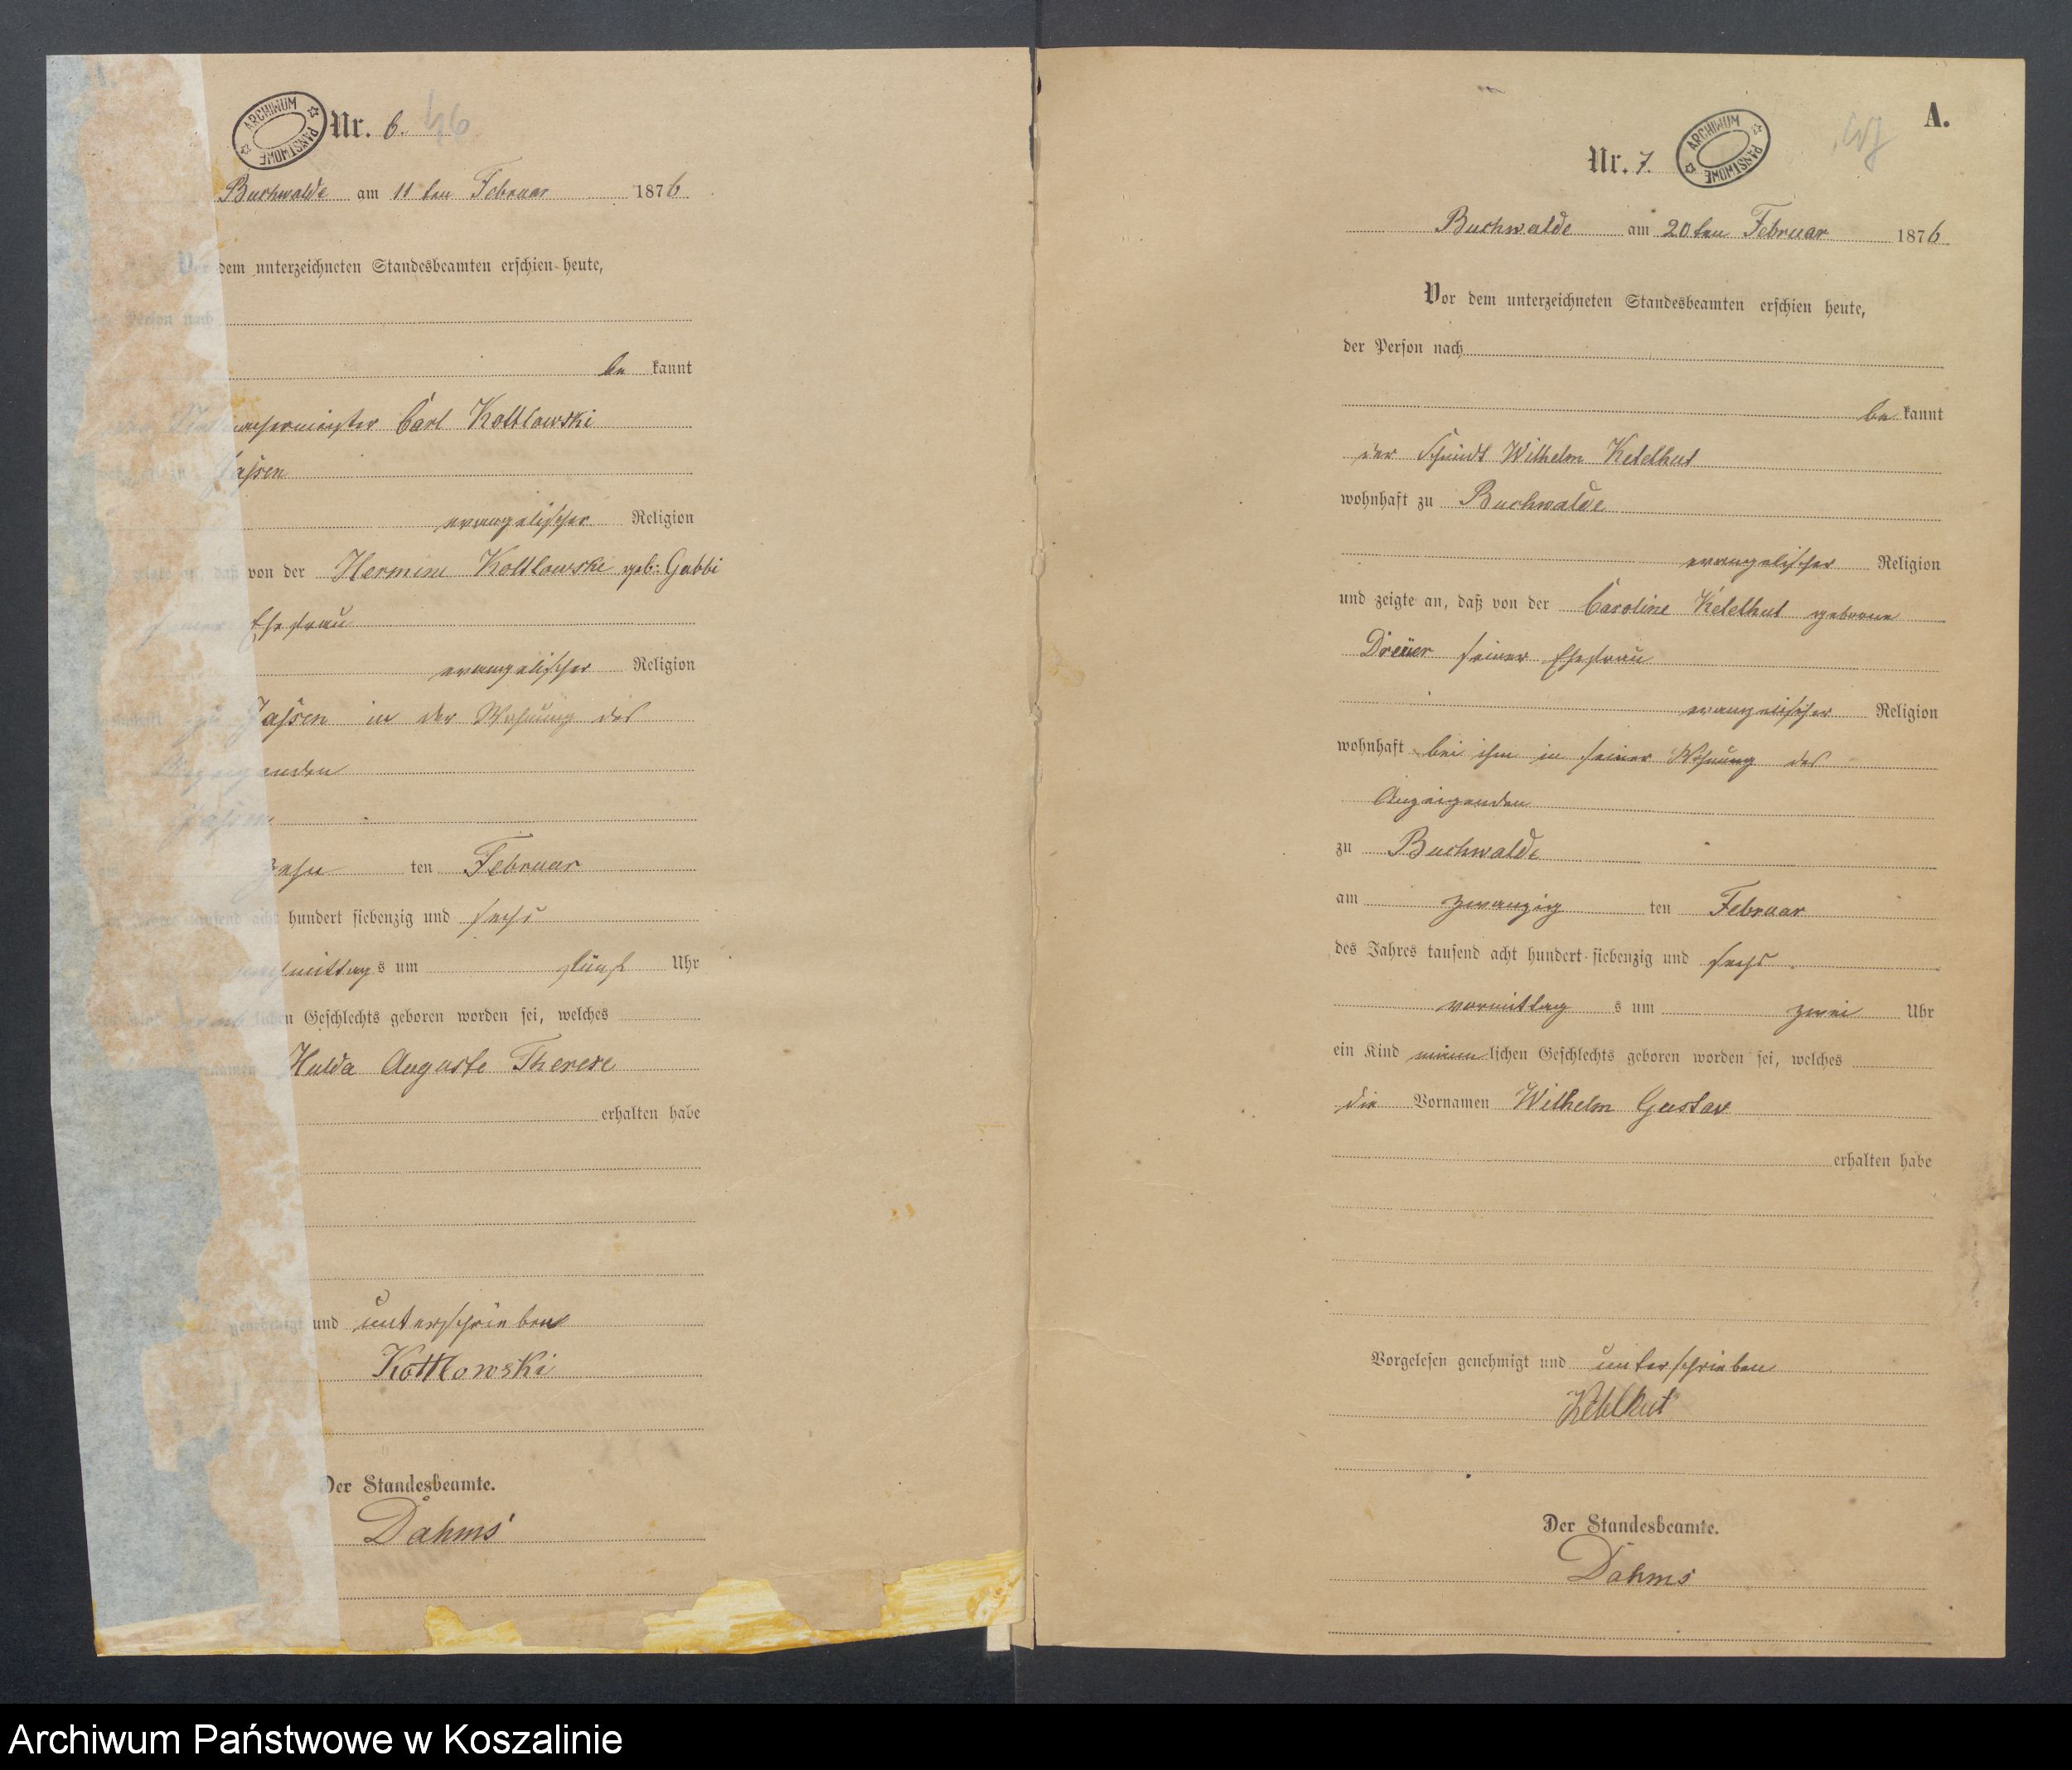 ARCHIWUM PAŃSTWOWE
Nr. 6. 46
Buchwalde am 11 ten Februar 1876
Vor dem unterzeichneten Standesbeamten erschien heute,
Person nach
be kannt
Carl Kottlowski
Jassen
evangelischer Religion
zeigte an, daß von der Hermine Kottlowski geb: Gabbi
seiner Ehefrau
evangelischer Religion
wohnhaft zu Jassen in der Wohnung des
Anzeigenden
Jassen
zehn ten Februar
des Jahres tausend acht hundert siebenzig und sechs
nachmittag s um fünf Uhr
lichen Geschlechts geboren worden sei, welches
Vornamen Hulda Auguste Therese
erhalten habe
genehmigt und unterschrieben
Kottlowski
Der Standesbeamte.
Dahms
A.
Nr. 7. ARCHIWUM PAŃSTWOWE
Buchwalde am 20 ten Februar 1876
Vor dem unterzeichneten Standesbeamten erschien heute,
der Person nach
be kannt
der Schmidt Wilhelm Ketelhut
wohnhaft zu Buchwalde
evangelischer Religion
und zeigte an, daß von der Caroline Ketelhut geborne
Dreüer seiner Ehefrau
evangelischer Religion
wohnhaft bei ihm in seiner Wohnung des
Anzeigenden
zu Buchwalde
am zwanzig ten Februar
des Jahres tausend acht hundert siebenzig und sechs
vormittag s um zwei Uhr
ein Kind männ lichen Geschlechts geboren worden sei, welches
die Vornamen Wilhelm Gustav
erhalten habe
Vorgelesen genehmigt und unterschrieben
Ketelhut
Der Standesbeamte.
Dahms
Archiwum Państwowe w Koszalinie